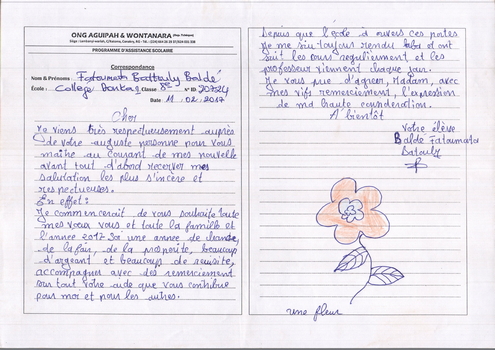 ONG AGUIPAH & WONTANARA
PROGRAMME D'ASSISTANCE SCOLAIRE
Correspondance
Nom & Prénoms : Fatoumata Battouly Baldé
École : College Classe 8e N° ID: 207324
Date 11.02.2017
Cher
Je viens très respectueusement auprès
de votre auguste personne pour vous
maître au courant de mes nouvelle
avant tout d'abord recevez mes
salutation les plus sincère et
respectueuses.
En effet:
Je commencerait de vous souhaité toute
mes vœux vous et toute la famille et
l'année 2017 soi une année de chance,
de la paix, de la prosperité, beaucoup
d'argeant et beaucoup de reusite,
accompagner avec des remerciement
sur tout votre aide que vous contribue
pour moi et pour les autres.
Depuis que l'école à ouvers ces portes
je me suis toujours rendu labà et ont
suit les cours regulierement et les
professeur viennent chaque jour.
Je vous prie d'agréer, Madam, avec
mes vifs remerciement, l'expression
de ma haute consideration.
A bientôt
Votre élève
Balde Fatoumata
Batouly
une fleur